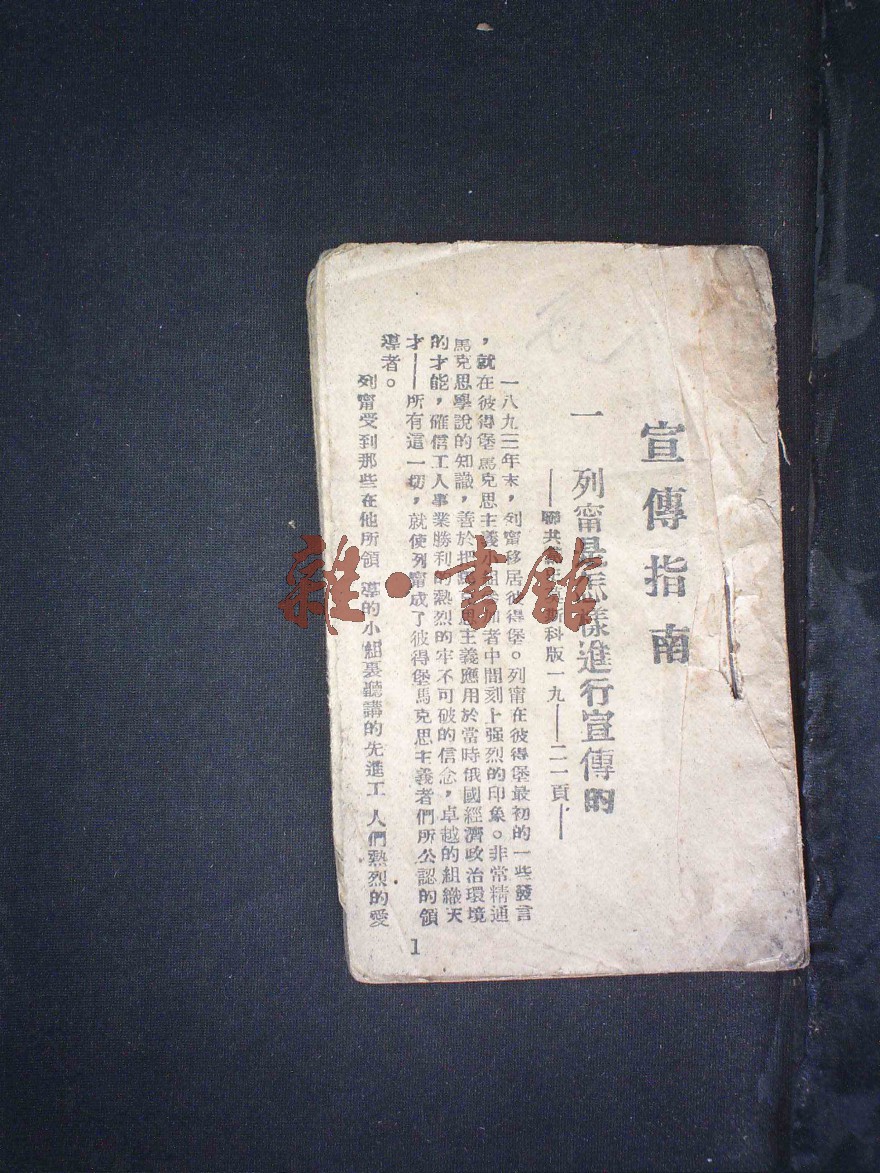 宣傳指南
一 列甯是怎樣進行宣傳的
——聯共 斯科版一九——二一頁·—
一八九三年末，列甯移居彼得堡。列甯在彼得堡最初的一些發言
，就在彼得堡馬克思主義小組 者中間刻上强烈的印象。非常精通
馬克思學說的知識，善於把馬克思主義應用於當時俄國經濟政治環境
的才能，確信工人事業勝利的熱烈的牢不可破的信念，卓越的組織天
才——所有這一切，就使列甯成了彼得堡馬克思主義者們所公認的領
導者。
列甯受到那些在他所領 導的小組裏聽講的先進工 人們熱烈的愛
1
雜·書館